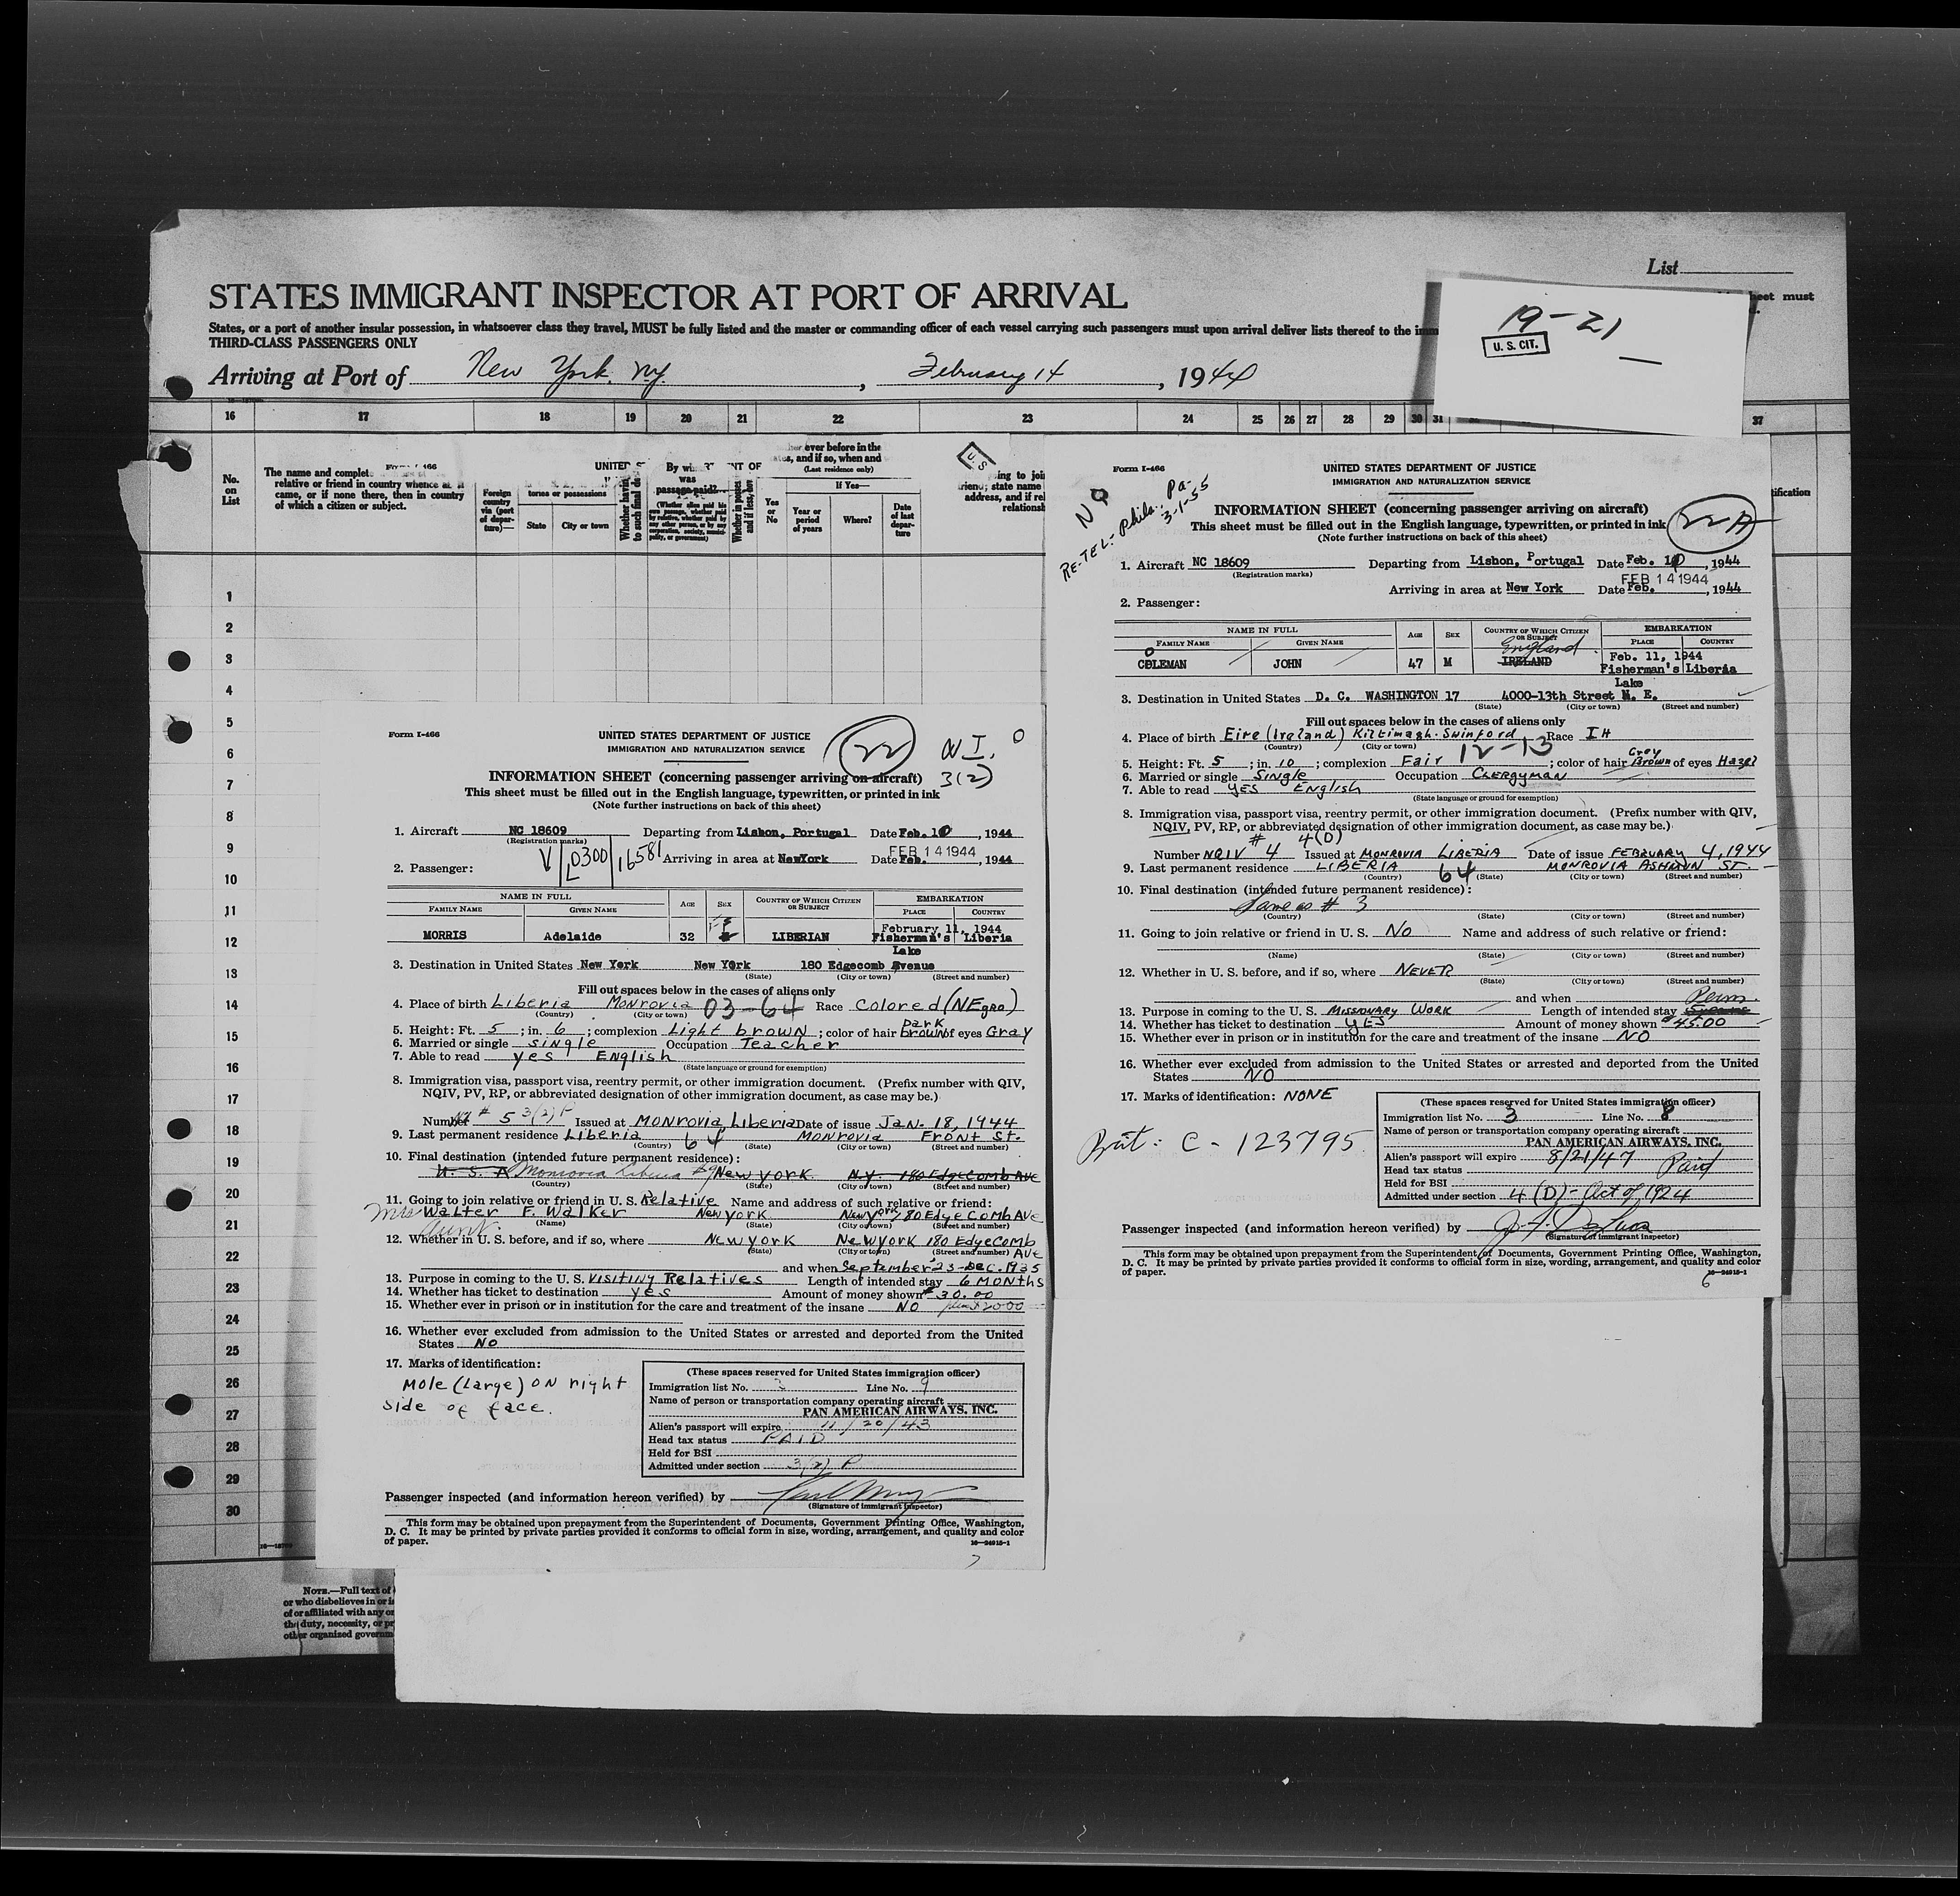 List
STATES IMMIGRANT INSPECTOR AT PORT OF ARRIVAL
States, or a port of another insular possession, in whatsoever class they travel, MUST be fully listed and the master or commanding officer of each vessel carrying such passengers must upon arrival deliver lists thereof to the imm
sheet must
THIRD-CLASS PASSENGERS ONLY
Arriving at Port of New York, N.Y. , February 14 , 1944
19-21
U. S. CIT.
16 17 18 19 20 21 22 23 24 25 26 27 28 29 30 31 37
No. on List
The name and complete
relative or friend in country whence
came, or if none there, then in country
of which a citizen or subject.
Foreign country via (port of departure)—
tories or possessions
State
City or town
By
was
passage paid?
ever before in the
and if so, when and
(Last residence only)
If Yes—
Yes or No
Year or period of years
Where?
Date of last departure
U S
ing to joi
friend; state name
address, and if rel
relations
1
2
3
4
5
6
7
8
9
10
11
12
13
14
15
16
17
18
19
20
21
22
23
24
25
26
27
28
29
30
NOTE.—Full text of
or who disbelieves in or is
of or affiliated with any or
the duty, necessity, or pr
other organized governm
Form I-466
UNITED STATES DEPARTMENT OF JUSTICE
IMMIGRATION AND NATURALIZATION SERVICE
22
N I.
3(2)
INFORMATION SHEET (concerning passenger arriving on aircraft)
This sheet must be filled out in the English language, typewritten, or printed in ink
(Note further instructions on back of this sheet)
1. Aircraft NC 18609 Departing from Lisbon, Portugal Date Feb. 10 , 1944
(Registration marks)
FEB 14 1944
V L0300 16581
Arriving in area at NewYork Date Feb. , 1944
2. Passenger:
NAME IN FULL AGE SEX COUNTRY OF WHICH CITIZEN OR SUBJECT EMBARKATION
FAMILY NAME GIVEN NAME PLACE COUNTRY
February 11, 1944
MORRIS Adelaide 32 F LIBERIAN Fisherman's Liberia
Lake
3. Destination in United States New York New York 180 Edgecomb Avenue
(State) (City or town) (Street and number)
Fill out spaces below in the cases of aliens only
4. Place of birth Liberia Monrovia 03-64 Race Colored (NEgro)
(Country) (City or town)
5. Height: Ft. 5 ; in. 6 ; complexion Light brown ; color of hair Dark brown of eyes Gray
6. Married or single single Occupation Teacher
7. Able to read yes English
(State language or ground for exemption)
8. Immigration visa, passport visa, reentry permit, or other immigration document. (Prefix number with QIV,
NQIV, PV, RP, or abbreviated designation of other immigration document, as case may be.)
Number # 5 3(2) P Issued at MONROVIA LIBERIA Date of issue JAN. 18, 1944
9. Last permanent residence Liberia 64 Monrovia FRONT St.
(Country) (State) (City or town) (Street and number)
10. Final destination (intended future permanent residence):
U. S. A Monrovia Liberia #9 New york N.Y. 180 EdgeComb Ave
(Country) (State) (City or town) (Street and number)
11. Going to join relative or friend in U. S. Relative Name and address of such relative or friend:
Mrs Walter F. Walker New york New york 180 EdgeComb AVe
Aunt.
(Name) (State) (City or town) (Street and number)
12. Whether in U. S. before, and if so, where New york New york 180 EdgeComb AVe
(State) (City or town) (Street and number)
and when September 23-Dec. 1935
13. Purpose in coming to the U. S. Visiting Relatives Length of intended stay 6 MONths
14. Whether has ticket to destination yes Amount of money shown $30.00
15. Whether ever in prison or in institution for the care and treatment of the insane NO
16. Whether ever excluded from admission to the United States or arrested and deported from the United
States NO
17. Marks of identification:
Mole (Large) ON right
side of face.
(These spaces reserved for United States immigration officer)
Immigration list No. 3 Line No. 9
Name of person or transportation company operating aircraft
PAN AMERICAN AIRWAYS, INC.
Alien's passport will expire 11/20/43
Head tax status PAID
Held for BSI
Admitted under section 3(2) P
Passenger inspected (and information hereon verified) by
(Signature of immigrant inspector)
This form may be obtained upon prepayment from the Superintendent of Documents, Government Printing Office, Washington,
D. C. It may be printed by private parties provided it conforms to official form in size, wording, arrangement, and quality and color
of paper. 16—24915-1
Form I-466
UNITED STATES DEPARTMENT OF JUSTICE
IMMIGRATION AND NATURALIZATION SERVICE
RE-TEL-Phila., Pa.
3-1-55
22A
INFORMATION SHEET (concerning passenger arriving on aircraft)
This sheet must be filled out in the English language, typewritten, or printed in ink
(Note further instructions on back of this sheet)
1. Aircraft NC 18609 Departing from Lisbon, Portugal Date Feb. 10 , 1944
(Registration marks)
FEB 14 1944
Arriving in area at New York Date Feb. , 1944
2. Passenger:
NAME IN FULL AGE SEX COUNTRY OF WHICH CITIZEN OR SUBJECT EMBARKATION
FAMILY NAME GIVEN NAME PLACE COUNTRY
England
Feb. 11, 1944
COLEMAN JOHN 47 M IRELAND Fisherman's Liberia
Lake
3. Destination in United States D. C. WASHINGTON 17 4000-13th Street N. E.
(State) (City or town) (Street and number)
Fill out spaces below in the cases of aliens only
4. Place of birth Eire (Ireland) Kiltimagh-Swinford Race IH
(Country) (City or town)
12-13
5. Height: Ft. 5 ; in. 10 ; complexion Fair ; color of hair Grey Brown of eyes Hazel
6. Married or single Single Occupation CLERGYMAN
7. Able to read YES English
(State language or ground for exemption)
8. Immigration visa, passport visa, reentry permit, or other immigration document. (Prefix number with QIV,
NQIV, PV, RP, or abbreviated designation of other immigration document, as case may be.)
Number NQIV # 4 4(D) Issued at MONROVIA LIBERIA Date of issue FEBRUARY 4, 1944
9. Last permanent residence LIBERIA 64 MONROVIA ASHMUN ST.
(Country) (State) (City or town) (Street and number)
10. Final destination (intended future permanent residence):
Same as # 3
(Country) (State) (City or town) (Street and number)
11. Going to join relative or friend in U. S. No Name and address of such relative or friend:
(Name) (State) (City or town) (Street and number)
12. Whether in U. S. before, and if so, where NEVER
(State) (City or town) (Street and number)
and when
Perm.
13. Purpose in coming to the U. S. MISSIONARY WORK Length of intended stay
14. Whether has ticket to destination YES Amount of money shown $45.00
15. Whether ever in prison or in institution for the care and treatment of the insane NO
16. Whether ever excluded from admission to the United States or arrested and deported from the United
States NO
17. Marks of identification: NONE
Brit: C - 123795
(These spaces reserved for United States immigration officer)
Immigration list No. 3 Line No. 8
Name of person or transportation company operating aircraft
PAN AMERICAN AIRWAYS, INC.
Alien's passport will expire 8/21/47
Head tax status Paid
Held for BSI
Admitted under section 4 (D) - Act of 1924
Passenger inspected (and information hereon verified) by
(Signature of immigrant inspector)
This form may be obtained upon prepayment from the Superintendent of Documents, Government Printing Office, Washington,
D. C. It may be printed by private parties provided it conforms to official form in size, wording, arrangement, and quality and color
of paper. 16—24915-1